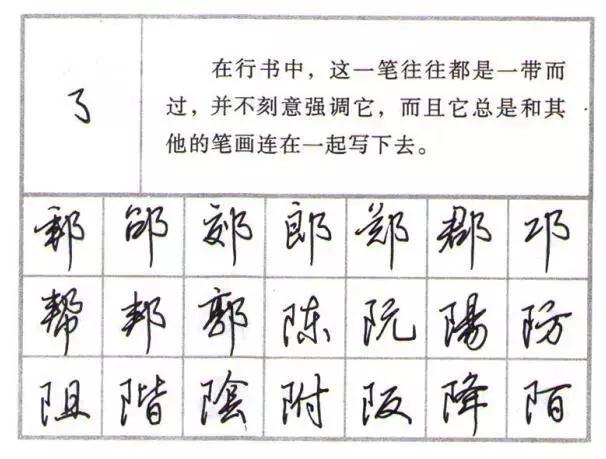 在行书中，这一笔往往都是一带而
过，并不刻意强调它，而且它总是和其
他的笔画连在一起写下去。
邮 郊 郎 郑 郡 邛
帮 邦 郭 陈 阮 陽 防
阻 階 陰 附 阪 降 陌